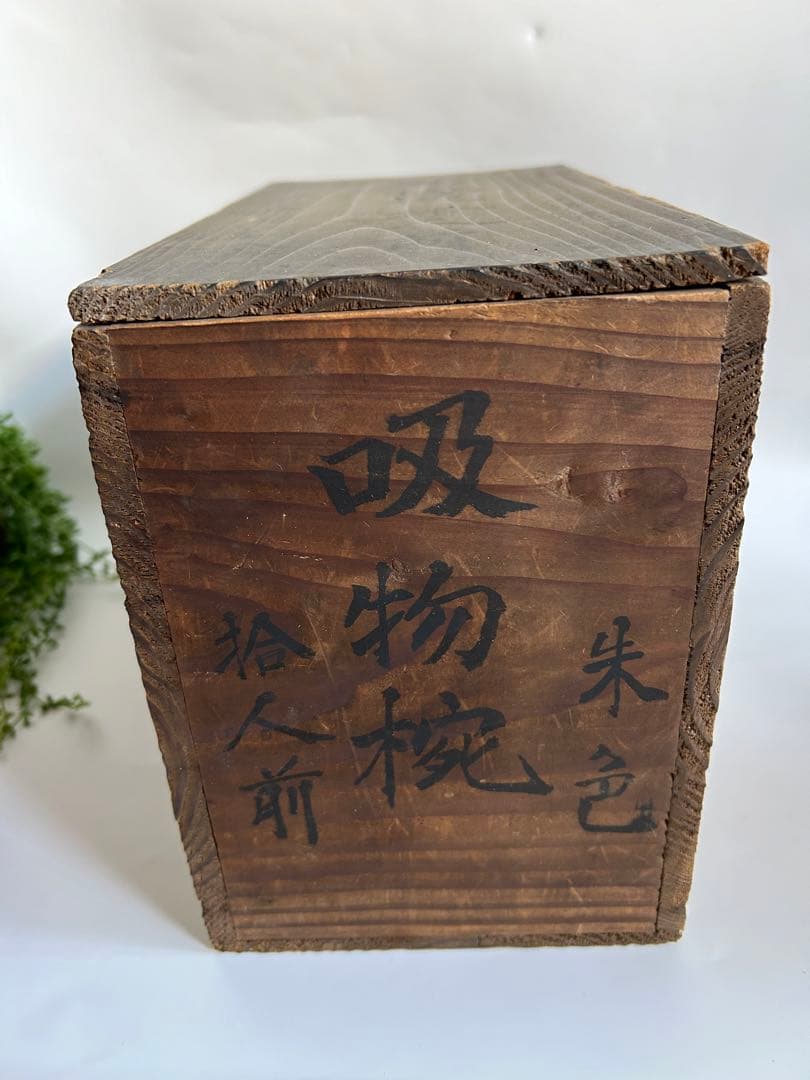 朱色
吸物椀
拾人前